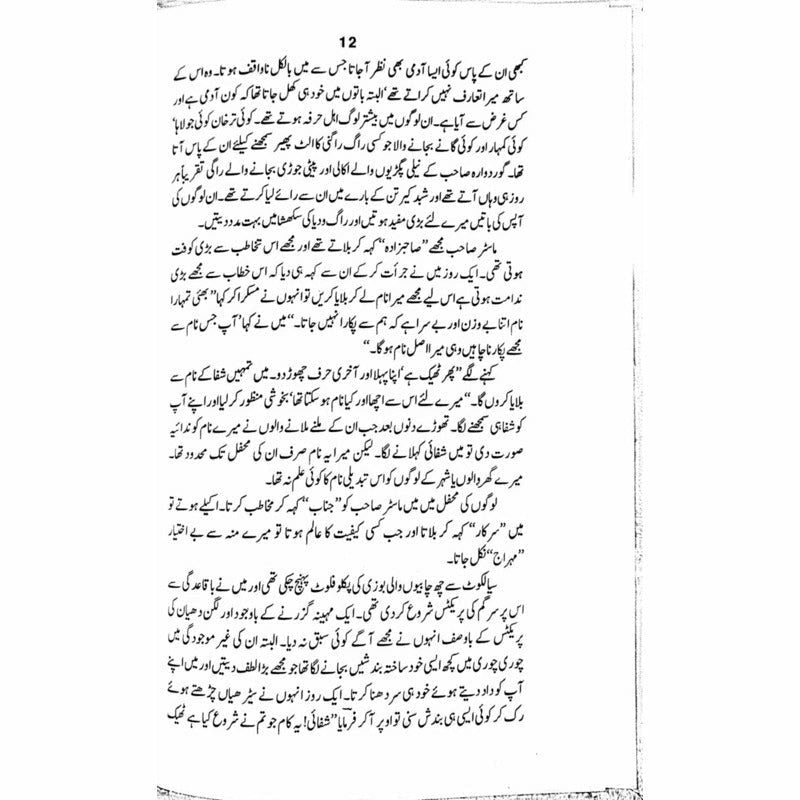 12
کبھی ان کے پاس کوئی ایسا آدمی بھی نظر آجاتا جس سے میں بالکل ناواقف ہوتا۔ وہ اس کے
ساتھ میرا تعارف نہیں کراتے تھے‘ البتہ باتوں میں خود ہی کھل جاتا تھا کہ کون آدمی ہے اور
کس غرض سے آیا ہے۔ ان لوگوں میں بیشتر لوگ اہل حرفہ ہوتے تھے۔ کوئی ترخان کوئی جولاہا‘
کوئی کمہار اور کوئی گانے بجانے والا جو کسی راگ راگنی کا الٹ پھیر سمجھنے کیلئے ان کے پاس آتا
تھا۔ گوردوارہ صاحب کے نیلی پگڑیوں والے اکالی اور پیٹی جوڑی بجانے والے راگی تقریباً ہر
روز ہی وہاں آتے تھے اور شبد کیرتن کے بارے میں ان سے رائے لیا کرتے تھے۔ ان لوگوں کی
آپس کی باتیں میرے لئے بڑی مفید ہوتیں اور راگ ودیا کی سکھشا میں بہت مدد دیتیں۔
ماسٹر صاحب مجھے ”صاحبزادہ“ کہہ کر بلاتے تھے اور مجھے اس تخاطب سے بڑی کوفت
ہوتی تھی۔ ایک روز میں نے جرأت کر کے ان سے کہہ ہی دیا کہ اس خطاب سے مجھے بڑی
ندامت ہوتی ہے اس لیے مجھے میرا نام لے کر بلایا کریں تو انہوں نے مسکرا کر کہا ”بھئی تمہارا
نام اتنا بے وزن اور بے سرا ہے کہ ہم سے پکارا نہیں جاتا۔“ میں نے کہا ’آپ جس نام سے
مجھے پکارنا چاہیں وہی میرا اصل نام ہوگا۔“
کہنے لگے ”پھر ٹھیک ہے‘ اپنا پہلا اور آخری حرف چھوڑ دو۔ میں تمہیں شفا کے نام سے
بلایا کروں گا۔“ میرے لئے اس سے اچھا اور کیا نام ہو سکتا تھا‘ بخوشی منظور کر لیا اور اپنے آپ
کو شفا ہی سمجھنے لگا۔ تھوڑے دنوں بعد جب ان کے ملنے ملانے والوں نے میرے نام کو ندائیہ
صورت دی تو میں شفائی کہلانے لگا۔ لیکن میرا یہ نام صرف ان کی محفل تک محدود تھا۔
میرے گھر والوں یا شہر کے لوگوں کو اس تبدیلی نام کا کوئی علم نہ تھا۔
لوگوں کی محفل میں میں ماسٹر صاحب کو ”جناب“ کہہ کر مخاطب کرتا۔ اکیلے ہوتے تو
میں ”سرکار“ کہہ کر بلاتا اور جب کسی کیفیت کا عالم ہوتا تو میرے منہ سے بے اختیار
”مہراج“ نکل جاتا۔
سیالکوٹ سے چھ چابیوں والی بوزی کی پکلو فلوٹ پہنچ چکی تھی اور میں نے باقاعدگی سے
اس پر سرگم کی پریکٹس شروع کر دی تھی۔ ایک مہینہ گزرنے کے باوجود اور لگن دھیان کی
پریکٹس کے باوصف انہوں نے مجھے آگے کوئی سبق نہ دیا۔ البتہ ان کی غیر موجودگی میں
چوری چوری میں کچھ ایسی خود ساختہ بندشیں بجانے لگا تھا جو مجھے بڑا لطف دیتیں اور میں اپنے
آپ کو داد دیتے ہوئے خود ہی سر دھنا کرتا۔ ایک روز انہوں نے سیڑھیاں چڑھتے ہوئے
رک کر کوئی ایسی ہی بندش سنی تو اوپر آ کر فرمایا ”شفائی! یہ کام جو تم نے شروع کیا ہے ٹھیک